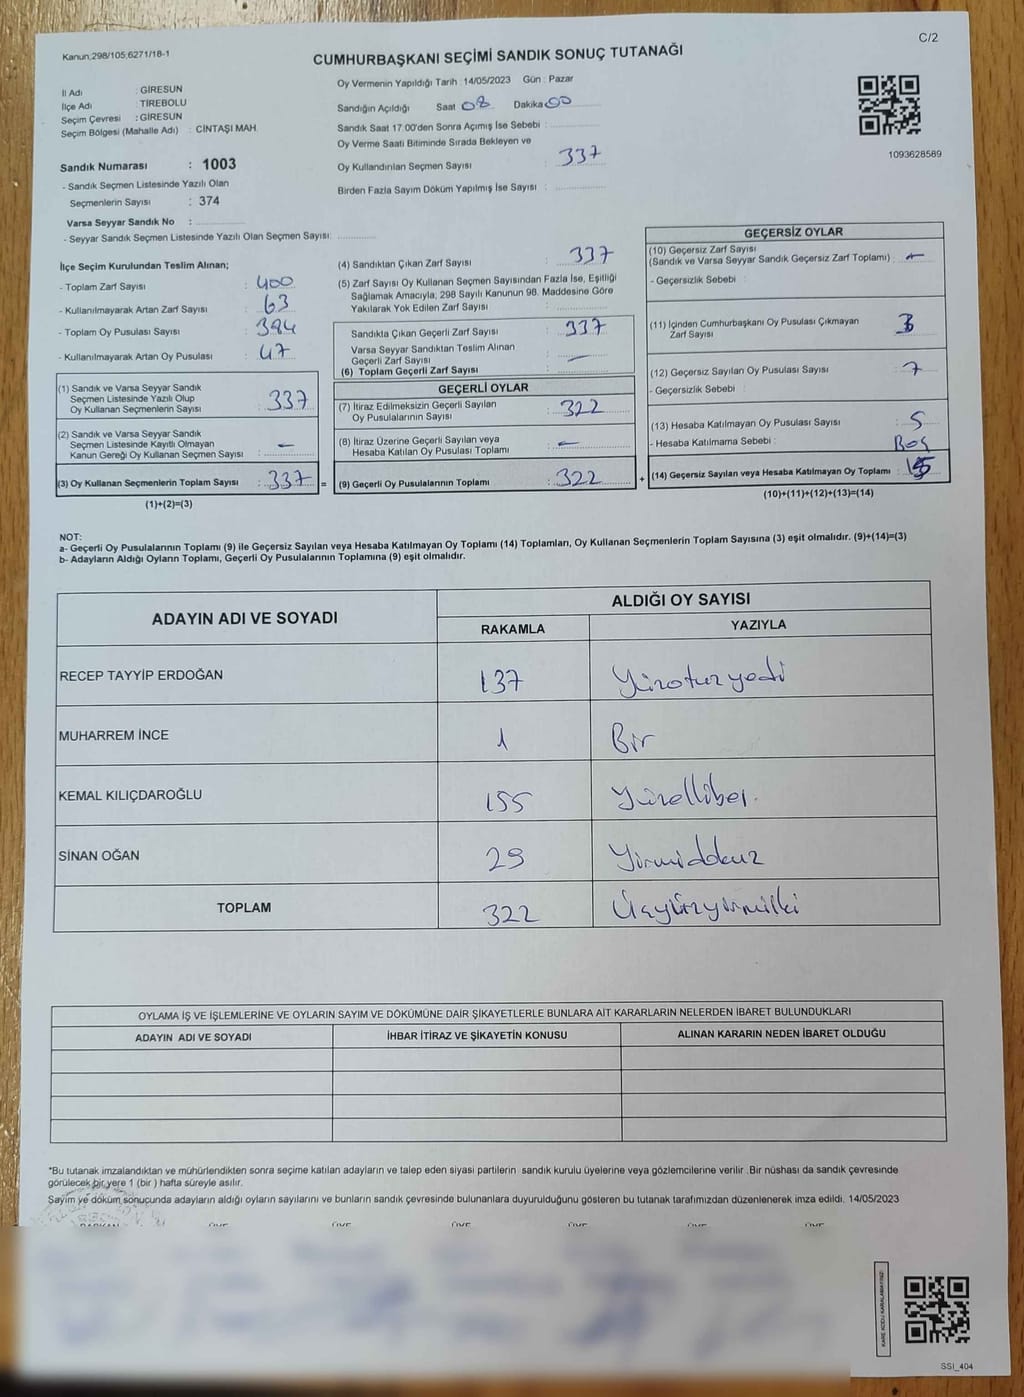 C/2
Kanun:298/105;6271/18-1
CUMHURBAŞKANI SEÇİMİ SANDIK SONUÇ TUTANAĞI
İl Adı : GİRESUN
İlçe Adı : TİREBOLU
Seçim Çevresi : GİRESUN
Seçim Bölgesi (Mahalle Adı) : CİNTAŞI MAH.
Oy Vermenin Yapıldığı Tarih : 14/05/2023 Gün : Pazar
Sandığın Açıldığı Saat 08 Dakika 00
Sandık Saat 17.00'den Sonra Açımış İse Sebebi :
Oy Verme Saati Bitiminde Sırada Bekleyen ve
Oy Kullandırılan Seçmen Sayısı : 337
Birden Fazla Sayım Döküm Yapılmış İse Sayısı :
1093628589
Sandık Numarası : 1003
- Sandık Seçmen Listesinde Yazılı Olan
Seçmenlerin Sayısı : 374
Varsa Seyyar Sandık No :
- Seyyar Sandık Seçmen Listesinde Yazılı Olan Seçmen Sayısı:
İlçe Seçim Kurulundan Teslim Alınan;
- Toplam Zarf Sayısı : 400
- Kullanılmayarak Artan Zarf Sayısı : 63
- Toplam Oy Pusulası Sayısı : 384
- Kullanılmayarak Artan Oy Pusulası : 47
(1) Sandık ve Varsa Seyyar Sandık
Seçmen Listesinde Yazılı Olup
Oy Kullanan Seçmenlerin Sayısı : 337
(2) Sandık ve Varsa Seyyar Sandık
Seçmen Listesinde Kayıtlı Olmayan
Kanun Gereği Oy Kullanan Seçmen Sayısı : –
(3) Oy Kullanan Seçmenlerin Toplam Sayısı : 337 =
(1)+(2)=(3)
(4) Sandıktan Çıkan Zarf Sayısı : 337
(5) Zarf Sayısı Oy Kullanan Seçmen Sayısından Fazla İse, Eşitliği
Sağlamak Amacıyla; 298 Sayılı Kanunun 98. Maddesine Göre
Yakılarak Yok Edilen Zarf Sayısı :
Sandıkta Çıkan Geçerli Zarf Sayısı : 337
Varsa Seyyar Sandıktan Teslim Alınan
Geçerli Zarf Sayısı : –
(6) Toplam Geçerli Zarf Sayısı :
GEÇERLİ OYLAR
(7) İtiraz Edilmeksizin Geçerli Sayılan
Oy Pusulalarının Sayısı : 322
(8) İtiraz Üzerine Geçerli Sayılan veya
Hesaba Katılan Oy Pusulası Toplamı : –
(9) Geçerli Oy Pusulalarının Toplamı : 322 +
GEÇERSİZ OYLAR
(10) Geçersiz Zarf Sayısı
(Sandık ve Varsa Seyyar Sandık Geçersiz Zarf Toplamı) : –
- Geçersizlik Sebebi :
(11) İçinden Cumhurbaşkanı Oy Pusulası Çıkmayan
Zarf Sayısı : 3
(12) Geçersiz Sayılan Oy Pusulası Sayısı : 7
- Geçersizlik Sebebi :
(13) Hesaba Katılmayan Oy Pusulası Sayısı : 5
- Hesaba Katılmama Sebebi : Boş
(14) Geçersiz Sayılan veya Hesaba Katılmayan Oy Toplamı : 15
(10)+(11)+(12)+(13)=(14)
NOT:
a- Geçerli Oy Pusulalarının Toplamı (9) ile Geçersiz Sayılan veya Hesaba Katılmayan Oy Toplamı (14) Toplamları, Oy Kullanan Seçmenlerin Toplam Sayısına (3) eşit olmalıdır. (9)+(14)=(3)
b- Adayların Aldığı Oyların Toplamı, Geçerli Oy Pusulalarının Toplamına (9) eşit olmalıdır.
ADAYIN ADI VE SOYADI ALDIĞI OY SAYISI
RAKAMLA YAZIYLA
RECEP TAYYİP ERDOĞAN 137 Yüzotuzyedi
MUHARREM İNCE 1 Bir
KEMAL KILIÇDAROĞLU 155 Yüzellibeş.
SİNAN OĞAN 29 Yirmidokuz
TOPLAM 322 Üçyüzyirmiiki
OYLAMA İŞ VE İŞLEMLERİNE VE OYLARIN SAYIM VE DÖKÜMÜNE DAİR ŞİKAYETLERLE BUNLARA AİT KARARLARIN NELERDEN İBARET BULUNDUKLARI
ADAYIN ADI VE SOYADI İHBAR İTİRAZ VE ŞİKAYETİN KONUSU ALINAN KARARIN NEDEN İBARET OLDUĞU
*Bu tutanak imzalandıktan ve mühürlendikten sonra seçime katılan adayların ve talep eden siyasi partilerin sandık kurulu üyelerine veya gözlemcilerine verilir .Bir nüshası da sandık çevresinde
görülecek bir yere 1 (bir ) hafta süreyle asılır.
Sayım ve döküm sonucunda adayların aldığı oyların sayılarını ve bunların sandık çevresinde bulunanlara duyurulduğunu gösteren bu tutanak tarafımızdan düzenlenerek imza edildi. 14/05/2023
KARE KODU KARALAMAYINIZ!
SSI_404